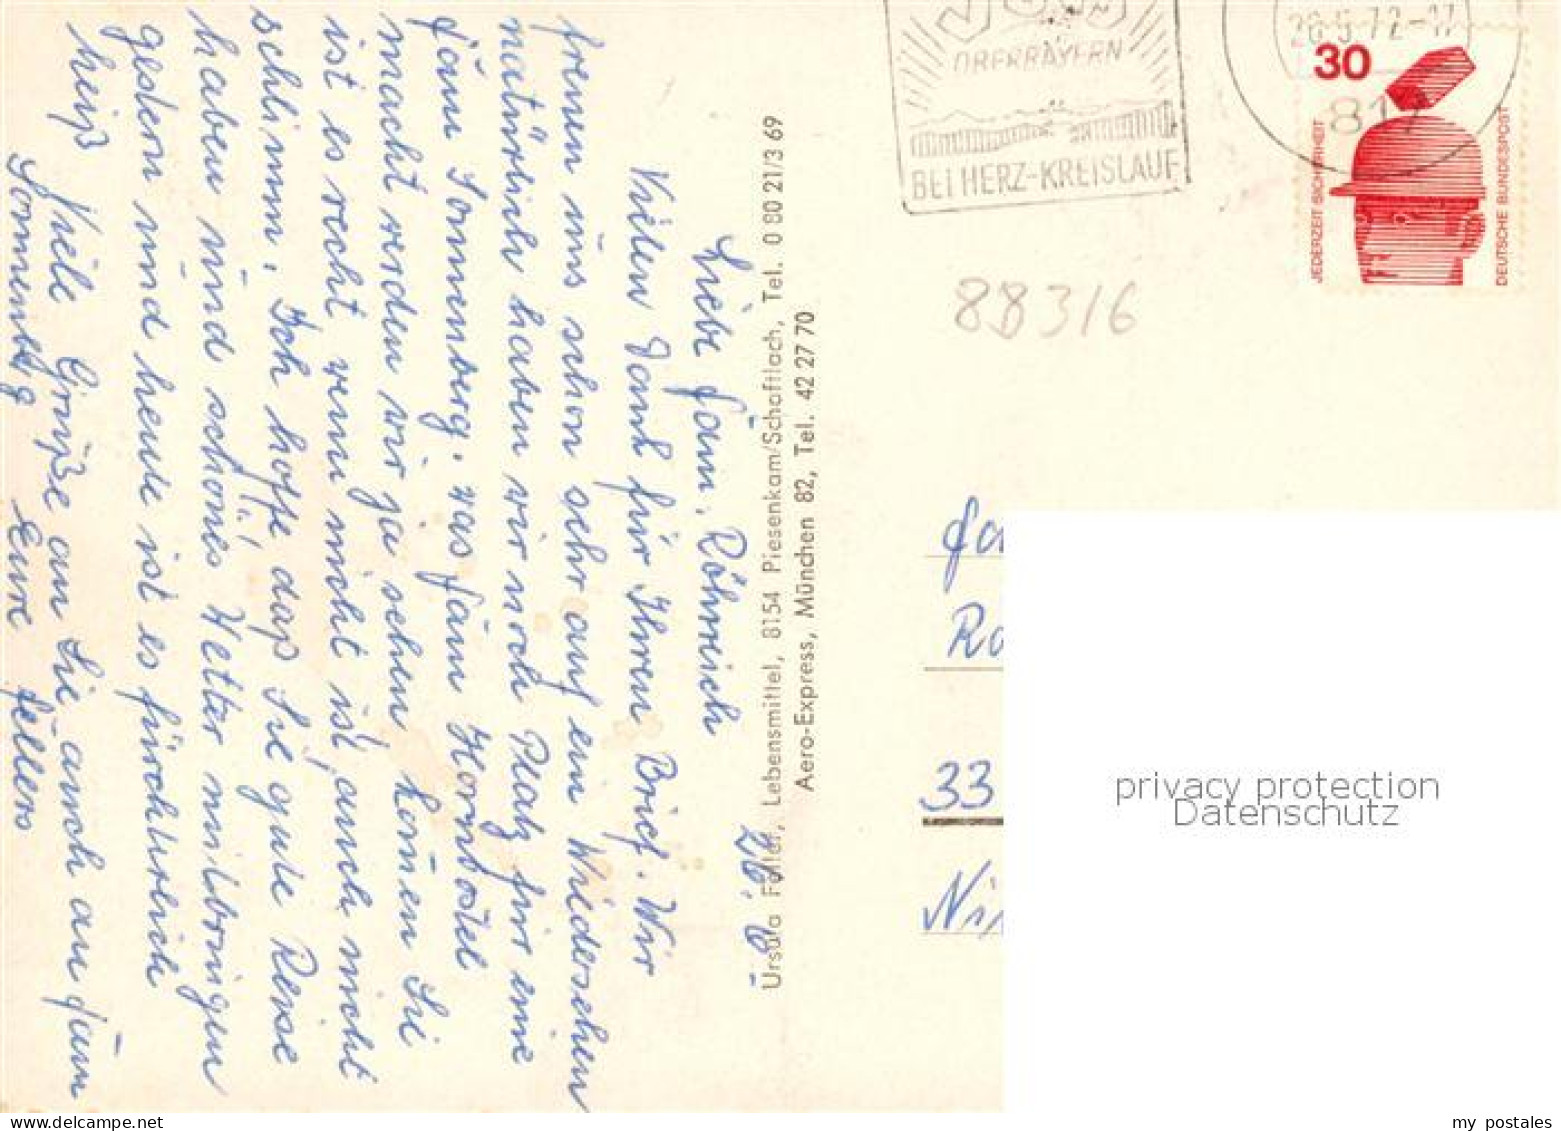 26. 5.
Liebe Fam. Röhreich
Vielen Dank für Ihren Brief. Wir
freuen uns schon sehr auf ein Wiedersehen
natürlich haben wir noch Platz für eine
Fam Sonnenberg. was Fam Hornbostel
macht werden wir ja sehen komen Sie
ist es recht wenn nicht ist, auch nicht
schlimm. Ich hoffe das Sie gute Reise
haben und schönes Wetter mitbringen
gestern und heute ist es fürchterlich
heiß Viele Grüße an Sie auch an Fam
Eure Fellers
Ursula Feller, Lebensmittel, 8154 Piesenkam/Schaftlach, Tel. 0 80 21/3 69
Aero-Express, München 82, Tel. 42 27 70
OBERBAYERN
BEI HERZ-KREISLAUF
72-17
817
30
JEDERZEIT SICHERHEIT
DEUTSCHE BUNDESPOST
88316
33
privacy protection
Datenschutz
my postales